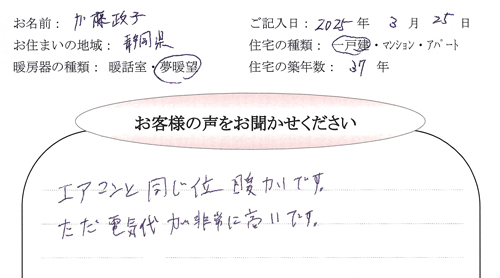 お名前： 加藤政子 ご記入日： 2025年 3月 25日
お住まいの地域： 静岡県 住宅の種類： 一戸建・マンション・アパート
暖房器の種類： 暖話室・夢暖望 住宅の築年数： 37 年
お客様の声をお聞かせください
エアコンと同じ位暖かいです。
ただ電気代が非常に高いです。